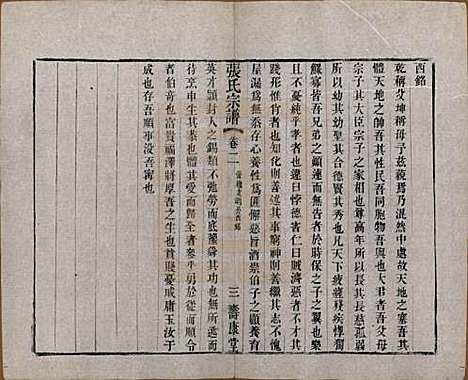 西銘
乾稱父坤稱母予茲藐焉乃混然中處故天地之塞吾其
體天地之帥吾其性民吾同胞物吾與也大君者吾父母
宗子其大臣宗子之家相也尊高年所以長其長慈孤弱
所以幼其幼聖其合德賢其秀也凡天下疲癃殘疾惸獨
鰥寡皆吾兄弟之顛連而無告者於時保之子之翼也樂
且不憂純乎孝者也違曰悖德害仁曰賊濟惡者不才其
踐形惟肖者也知化則善述其事窮神則善繼其志不愧
屋漏爲無忝存心養性爲匪懈惡旨酒崇伯子之顧養育
張氏宗譜 卷二 三 壽康堂
英才潁封人之錫類不弛勞而底豫舜其功也無所逃而
待烹申生其恭也體其受而歸全者參乎勇於從而順令
者伯奇也富貴福澤將厚吾之生也貧賤憂戚庸玉汝于
成也存吾順事沒吾寧也